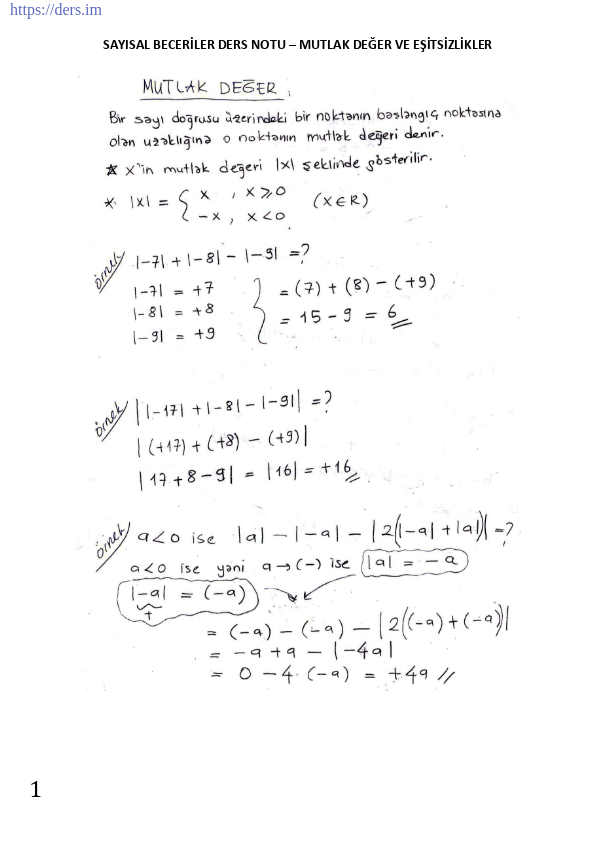 https://ders.im
SAYISAL BECERİLER DERS NOTU – MUTLAK DEĞER VE EŞİTSİZLİKLER
MUTLAK DEĞER ;
Bir sayı doğrusu üzerindeki bir noktanın başlangıç noktasına
olan uzaklığına o noktanın mutlak değeri denir.
* x'in mutlak değeri |x| şeklinde gösterilir.
* |x| = { x , x ≥ 0
-x , x < 0 (x ∈ R)
örnek |-7| + |-8| - |-9| = ?
|-7| = +7
|-8| = +8
|-9| = +9
} = (7) + (8) - (+9)
= 15 - 9 = 6
örnek | |-17| + |-8| - |-9| | = ?
| (+17) + (+8) - (+9) |
| 17 + 8 - 9 | = |16| = +16
örnek a<0 ise |a| - |-a| - |2(|-a| + |a|)| = ?
a<0 ise yani a → (-) ise |a| = -a
|-a| = (-a)
+
= (-a) - (-a) - |2((-a) + (-a))|
= -a + a - |-4a|
= 0 - 4·(-a) = +4a //
1